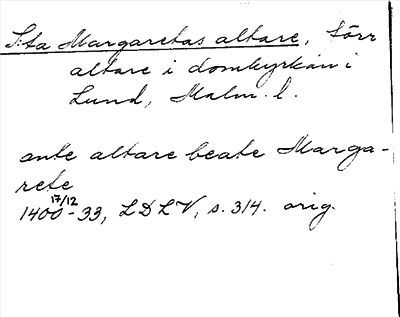 S:ta Margaretas altare, förr
altare i domkyrkan i
Lund, Malm. l.
ante altare beate Marga-
rete
1400 17/12 - 33, LDLV, s. 314. orig.